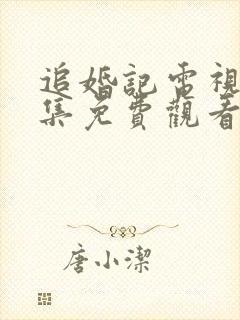 追婚記電視
集免費觀看
唐小潔